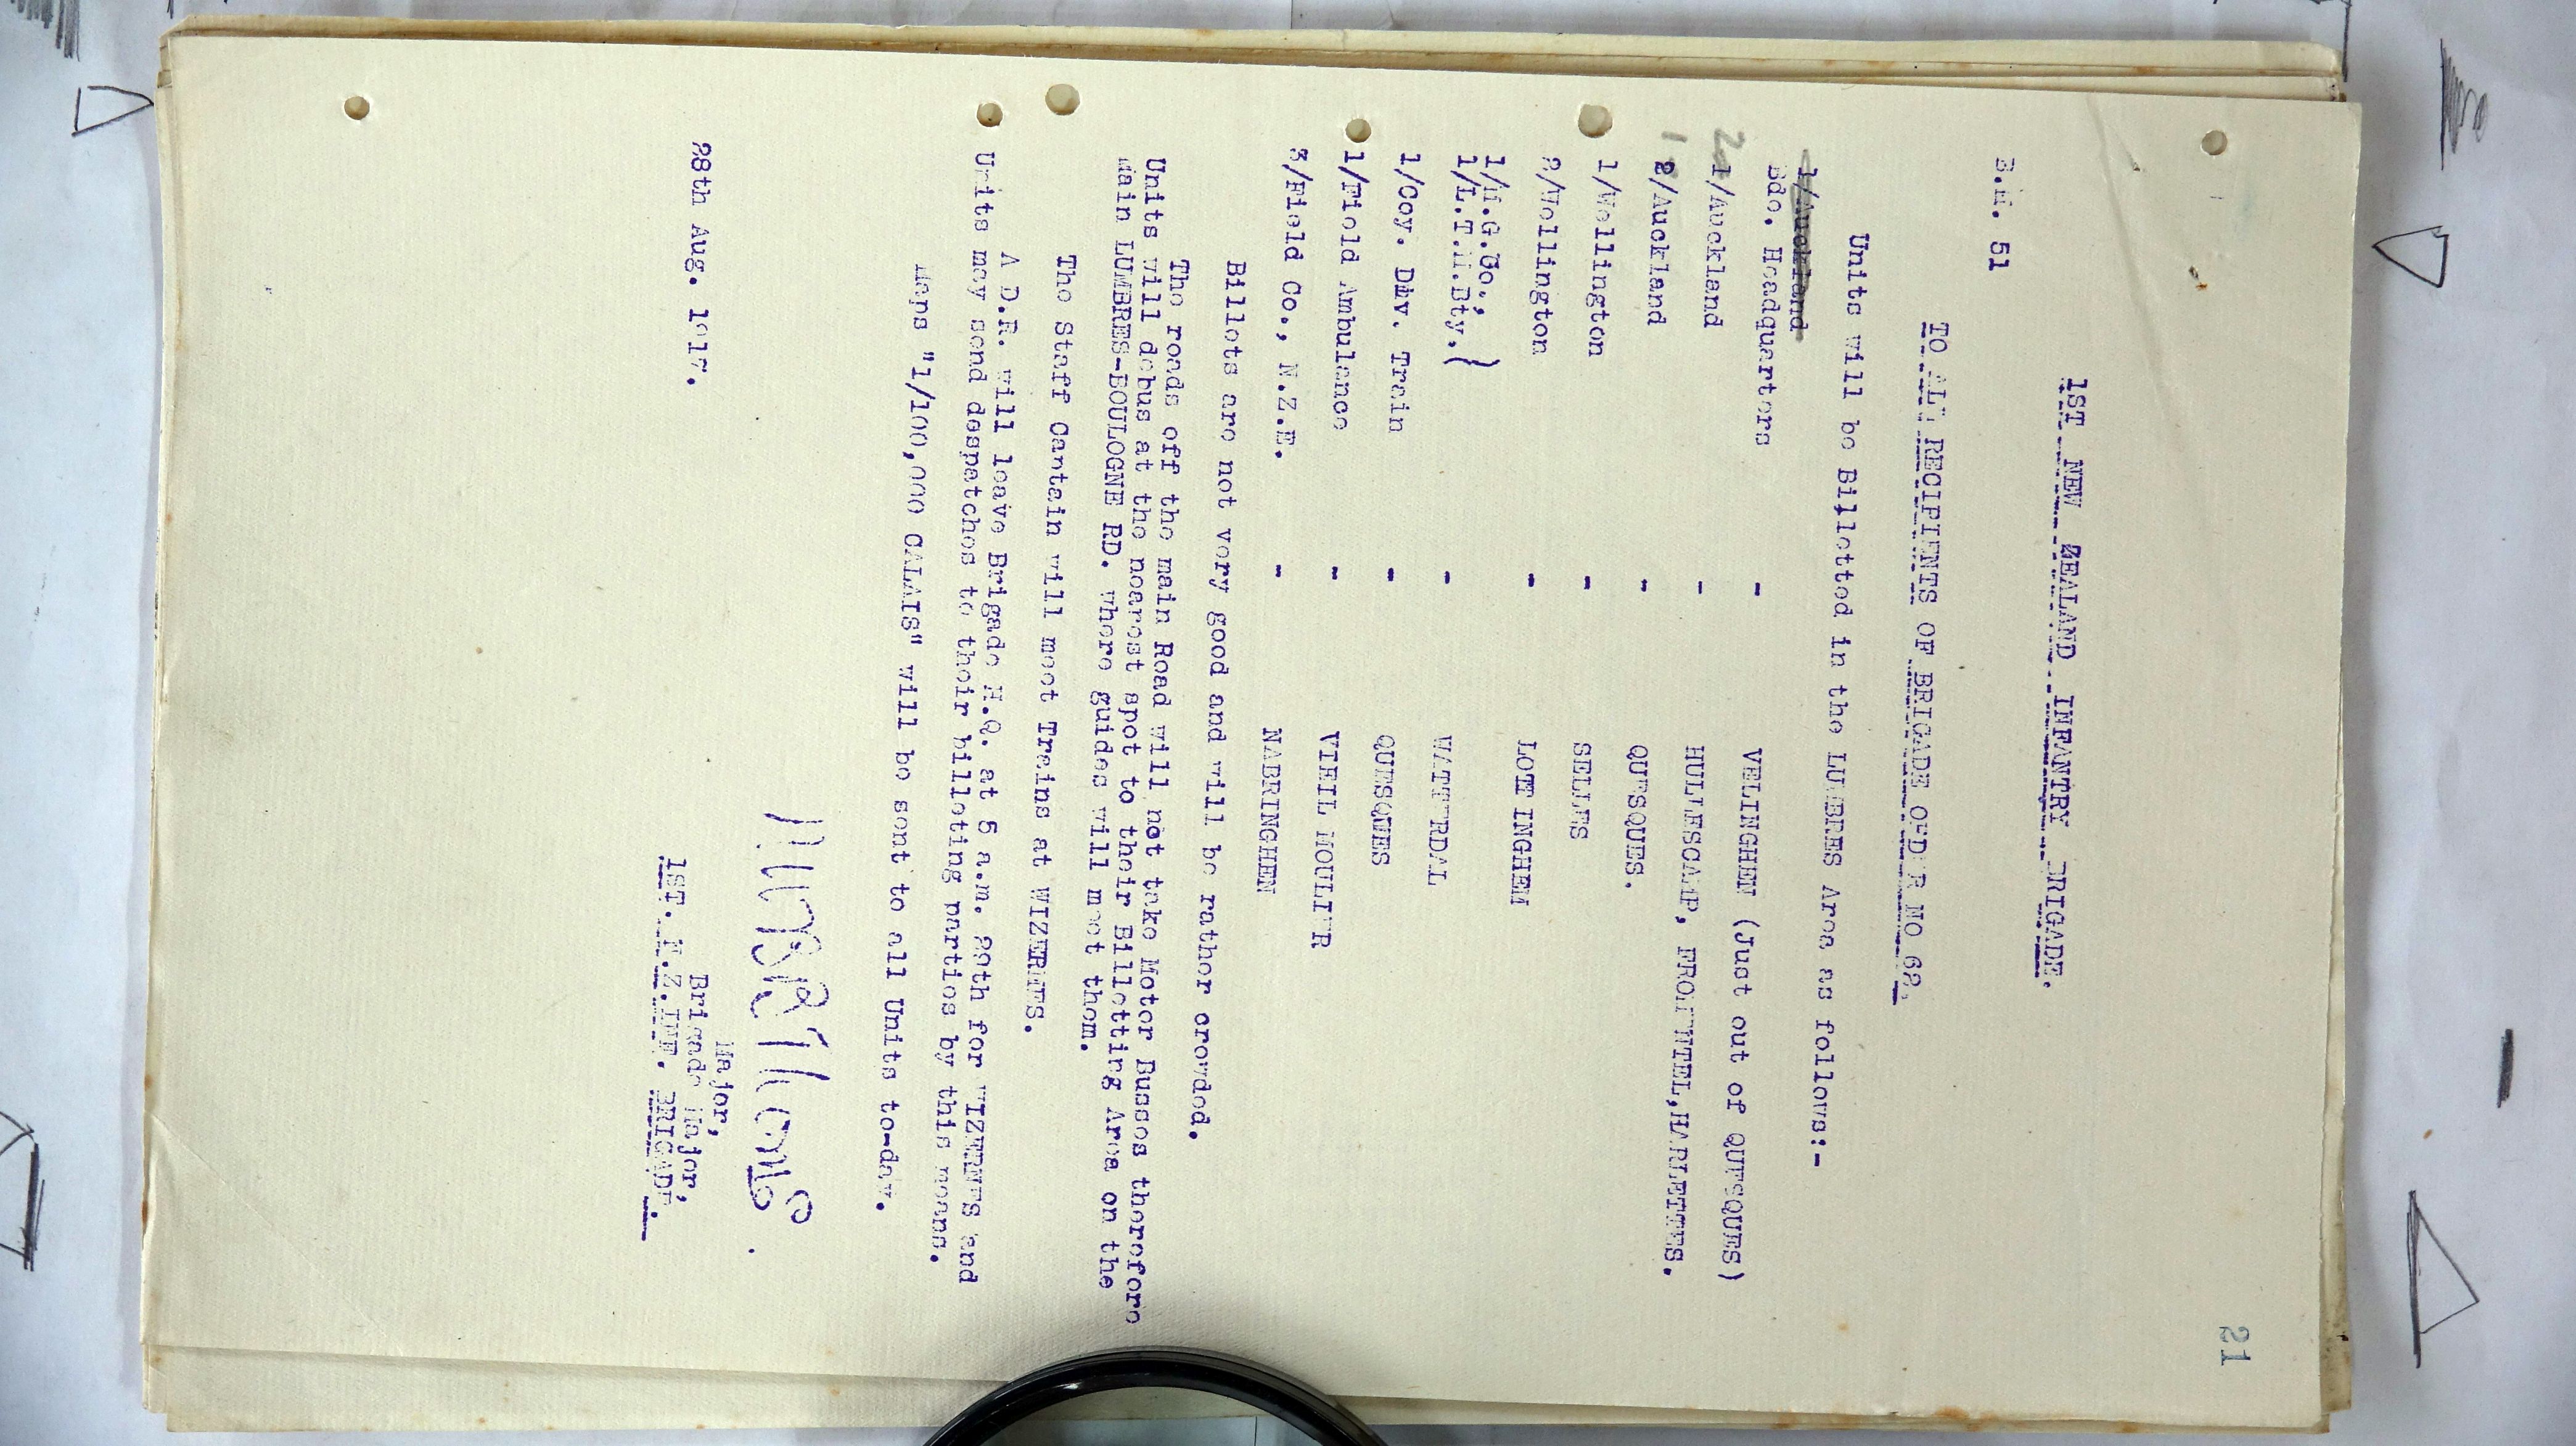 21
1ST NEW ZEALAND INFANTRY BRIGADE.
B.M. 51
TO ALL RECIPIENTS OF BRIGADE ORDER NO 62.
Units will be Billetted in the LUMBRES Area as follows:-
1/Auckland
Bde. Headquarters - VELINGHEN (Just out of QUESQUES)
2 1/Auckland - HULLESCAMP, FROMENTEL, HARLETTES.
1 2/Auckland - QUESQUES.
1/Wellington - SELLES
2/Wellington - LOTTINGHEM
1/M.G.Co.,)
1/L.T.M.Bty.) - WATTERDAL
1/Coy. Div. Train - QUESQUES
1/Field Ambulance - VIEIL MOULIER
3/Field Co., N.Z.E. - NABRINGHEN
Billets are not very good and will be rather crowded.
The roads off the main Road will not take Motor Busses therefore
Units will debus at the nearest spot to their Billetting Area on the
main LUMBRES-BOULOGNE RD. where guides will meet them.
The Staff Captain will meet Trains at WIZERNES.
A D.R. will leave Brigade H.Q. at 5 a.m. 29th for WIZERNES and
Units may send despatches to their billeting parties by this means.
Maps "1/100,000 CALAIS" will be sent to all Units to-day.
Major,
Brigade Major,
28th Aug. 1917. 1ST. N.Z.INF. BRIGADE.